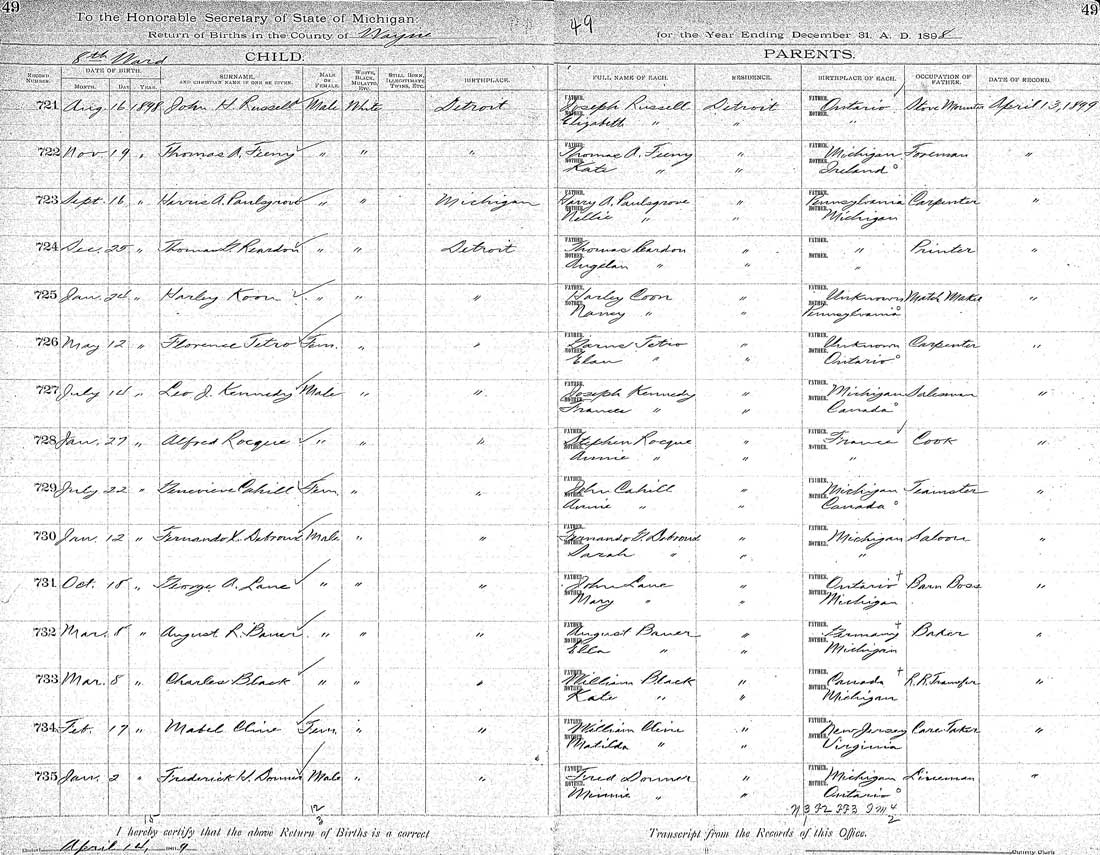 49
To the Honorable Secretary of State of Michigan:
Return of Births in the County of Wayne
49
49
for the Year Ending December 31, A. D. 1898
8th Ward
CHILD.
PARENTS.
RECORD NUMBER. DATE OF BIRTH. MONTH. DAY. YEAR. SURNAME, AND CHRISTIAN NAME IF ONE BE GIVEN. MALE OR FEMALE. WHITE, BLACK, MULATTO, ETC. STILL BORN, ILLEGITIMATE, TWINS, ETC. BIRTHPLACE. FULL NAME OF EACH. RESIDENCE. BIRTHPLACE OF EACH. OCCUPATION OF FATHER. DATE OF RECORD.
721 Aug 16 1898 John H. Russell Male White Detroit FATHER. Joseph Russell Detroit FATHER. Ontario Stove Mounter April 13, 1899
MOTHER. Elizabeth " " MOTHER. "
722 Nov 19 " Thomas A. Feeny " " " FATHER. Thomas A. Feeny " FATHER. Michigan Foreman "
MOTHER. Kate " " MOTHER. Ireland
723 Sept. 16 " Harris A. Paulsgrove " " Michigan FATHER. Harry A. Paulsgrove " FATHER. Pennsylvania Carpenter "
MOTHER. Nellie " " MOTHER. Michigan
724 Dec. 25 " Thomas Reardon " " Detroit FATHER. Thomas Reardon " FATHER. " Printer "
MOTHER. " " MOTHER. "
725 Jan. 24 " Harley Koon " " " FATHER. Harley Coon " FATHER. Unknown Match Maker "
MOTHER. Nancy " " MOTHER. Pennsylvania
726 May 12 " Florence Tetro Fem. " " FATHER. Tetro " FATHER. Unknown Carpenter "
MOTHER. " " MOTHER. Ontario
727 July 14 " Leo J. Kennedy Male " " FATHER. Joseph Kennedy " FATHER. Michigan Salesman "
MOTHER. Frances " " MOTHER. Canada
728 Jan. 27 " Alfred Rocque " " " FATHER. Stephen Rocque " FATHER. France Cook "
MOTHER. Annie " " MOTHER. "
729 July 22 " Genevieve Cahill Fem. " " FATHER. John Cahill " FATHER. Michigan Teamster "
MOTHER. Annie " " MOTHER. Canada
730 Jan. 12 " Fernando X. Male " " FATHER. Fernando " FATHER. Michigan Saloon "
MOTHER. Sarah " " MOTHER. "
731 Oct. 18 " George A. Lane " " " FATHER. John Lane " FATHER. Ontario Barn Boss "
MOTHER. Mary " " MOTHER. Michigan
732 Mar. 8 " August R. Bauer " " " FATHER. August Bauer " FATHER. Germany Baker "
MOTHER. Ella " " MOTHER. Michigan
733 Mar. 8 " Charles Black " " " FATHER. William Black " FATHER. Canada R.R. Transfer "
MOTHER. Kate " " MOTHER. Michigan
734 Feb. 17 " Mabel Cline Fem. " " FATHER. William Cline " FATHER. New Jersey Care Taker "
MOTHER. Matilda " " MOTHER. Virginia
735 Jan. 2 " Frederick W. Dormer Male " " FATHER. Fred Dormer " FATHER. Michigan Lineman "
MOTHER. Minnie " " MOTHER. Ontario
12
3
15
I hereby certify that the above Return of Births is a correct Transcript from the Records of this Office.
April 14, 9
County Clerk